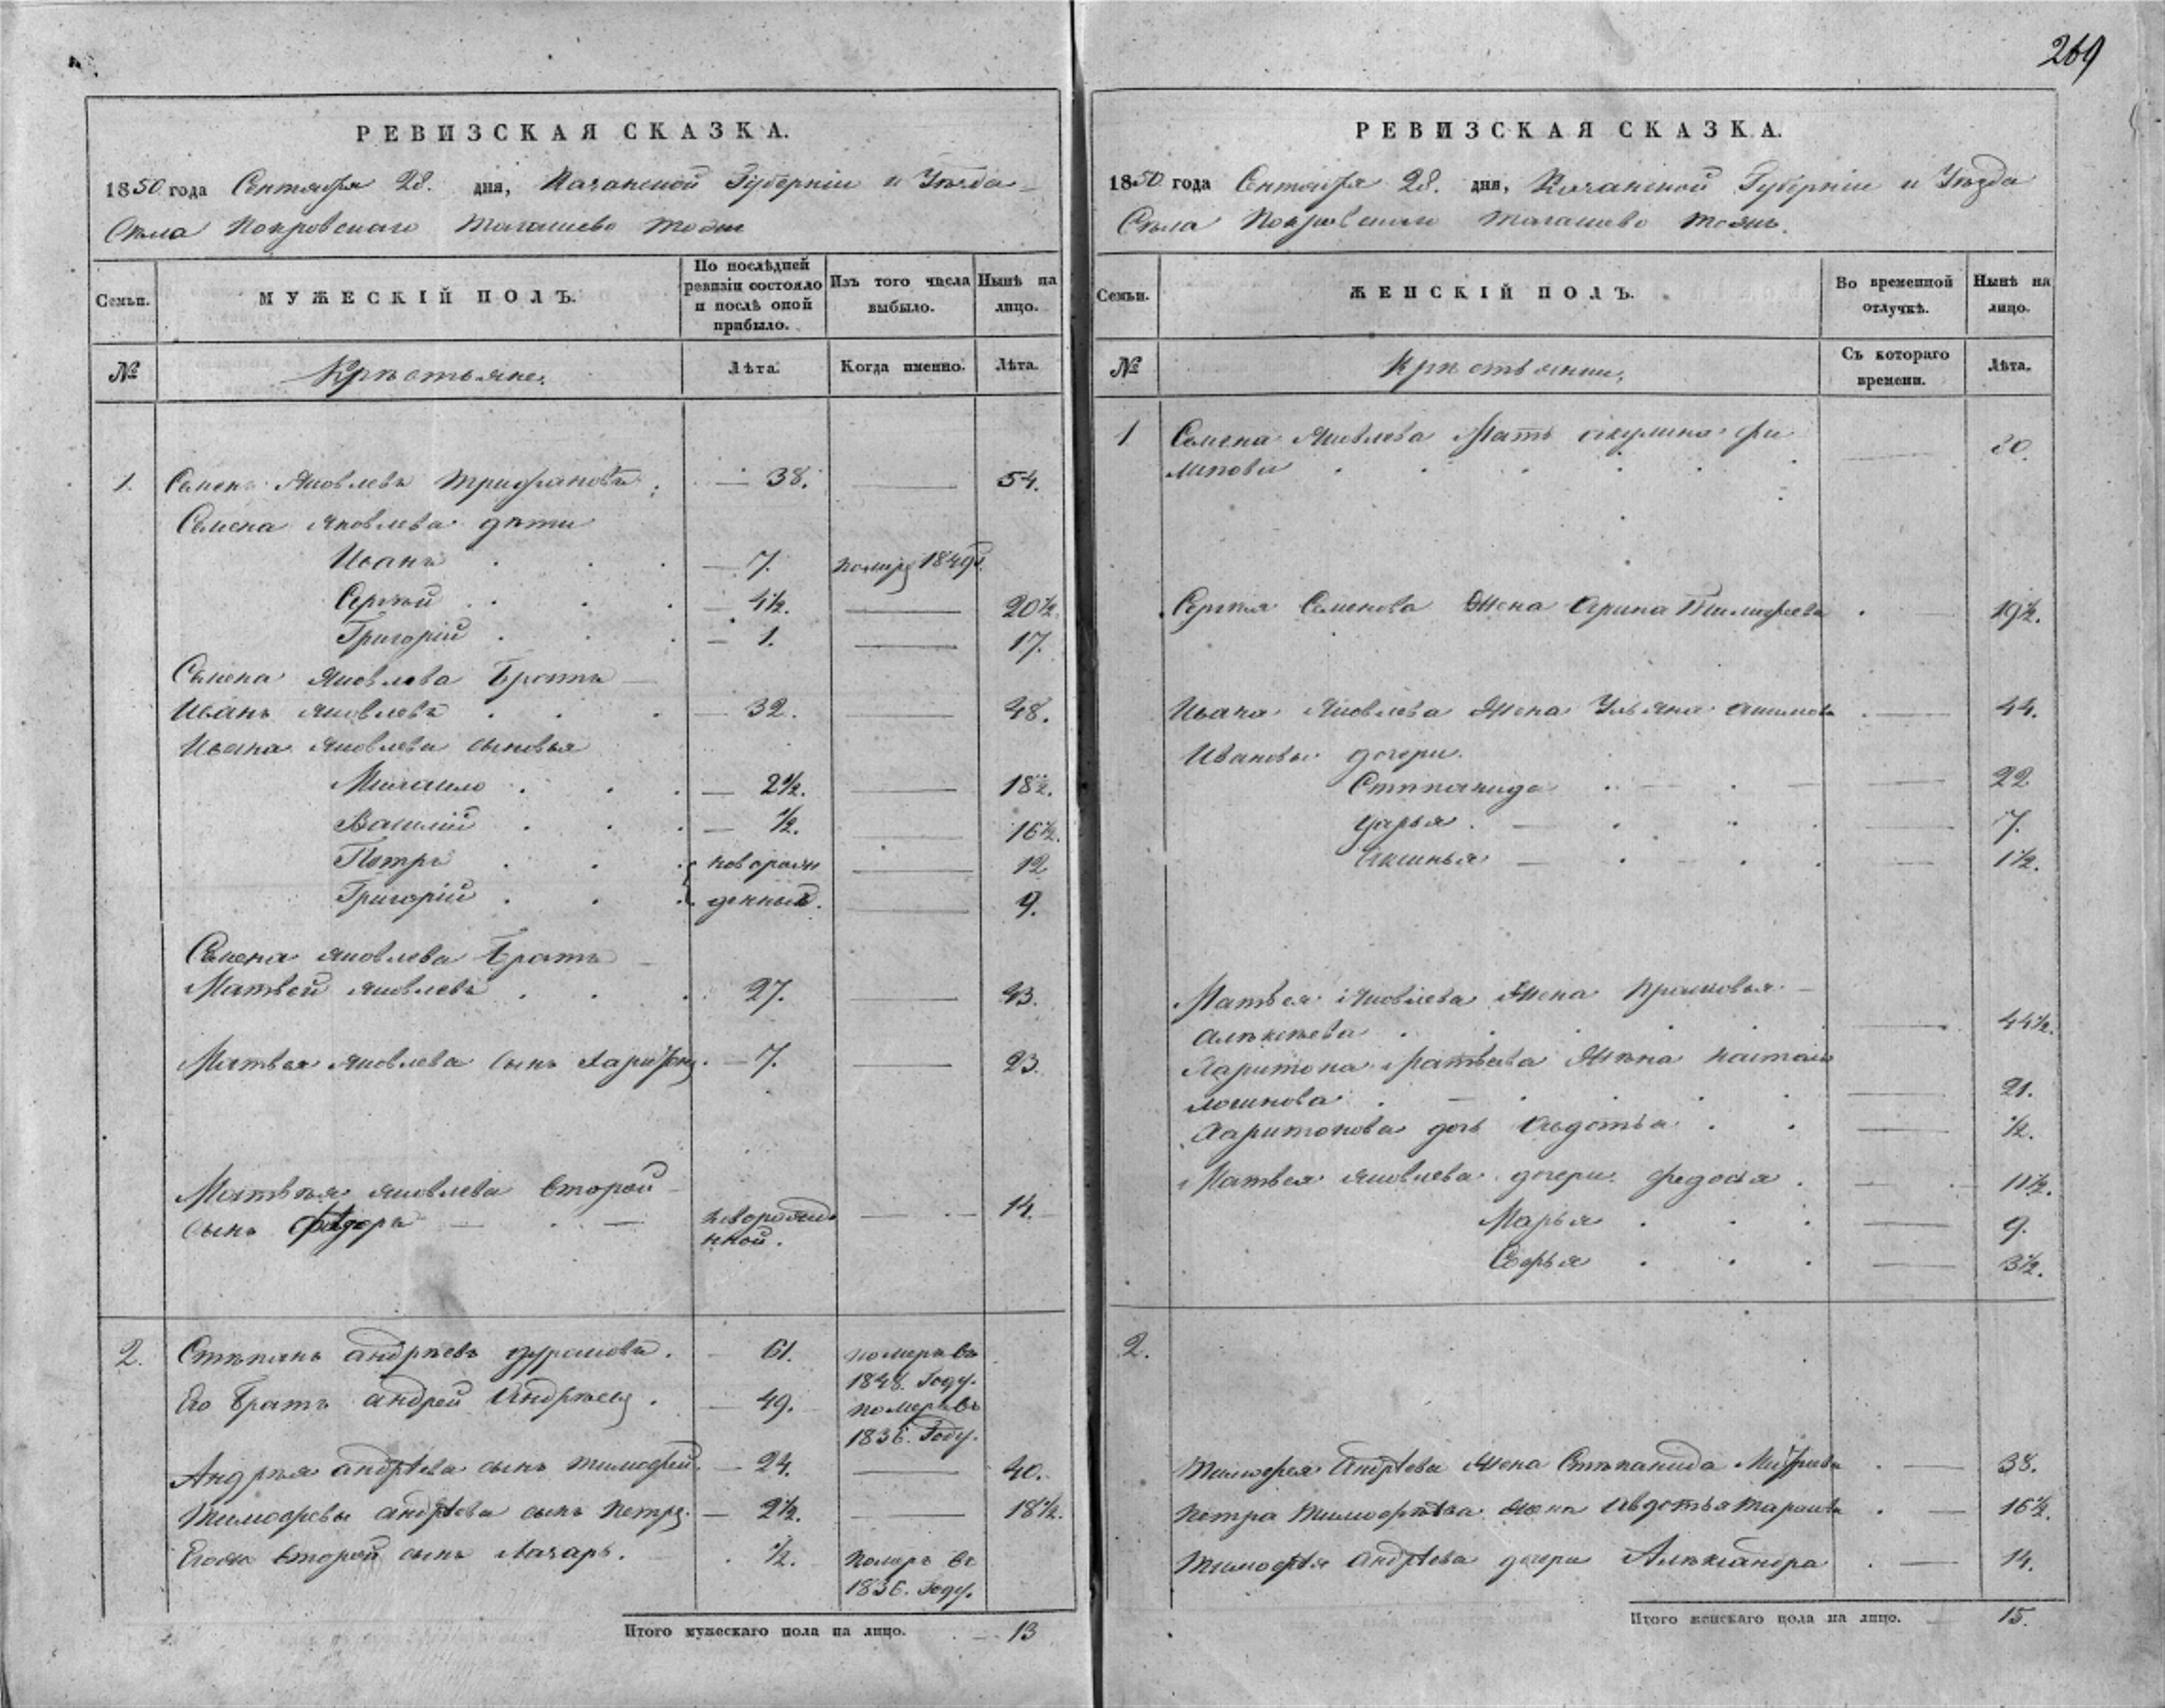 269
РЕВИЗСКАЯ СКАЗКА.
1850 года Сентября 28. дня, Казанской Губернiи и Уѣзда
Села Покровскаго тожъ
Семьи.
МУЖЕСКIЙ ПОЛЪ.
По послѣдней ревизiи состояло и послѣ оной прибыло.
Изъ того числа выбыло.
Нынѣ на лицо.
№
Крѣстьяне.
Лѣта.
Когда именно.
Лѣта.
1. Семенъ Яковлевъ Трифановъ 38. 54.
Семена Яковлева дѣти
Иванъ 7. померъ 1849
Сергѣй 4½. 20½.
Григорiй 1. 17.
Семена Яковлева Братъ
Иванъ Яковлевъ 32. 48.
Ивана Яковлева сыновья
Михаило 2½. 18½.
Василiй ½. 16½.
Петръ новорож 12
Григорiй денные. 9.
Семена Яковлева Братъ
Матвей Яковлевъ 27. 43.
Матвея Яковлева сынъ Харитонъ 7. 23.
Матвѣя Яковлева второй
сынъ Федоръ новорожде 14.
нной.
2. Стѣпанъ андрѣевъ 61. померъ въ
1848. Году.
Его Братъ андрей Андрѣевъ 49. померъ въ
1836. Году.
Андрѣя андрѣева сынъ тимофей 24. 40.
Тимофея андрѣева сынъ Петръ 2½. 18½.
Егоже второй сынъ Лазарь. ½. Померъ въ
1836. Году.
Итого мужескаго пола на лицо. 13
РЕВИЗСКАЯ СКАЗКА.
1850 года Сентября 28. дня, Казанской Губернiи и Уѣзда
Села Покровскаго тожъ.
Семьи.
ЖЕНСКIЙ ПОЛЪ.
Во временной отлучкѣ.
Нынѣ на лицо.
№
Съ котораго времени.
Лѣта.
1 Семена Яковлева Мать акулина фи
липова
Сергѣя Семенова Жена Арина Тимофеева 19½.
Ивана Яковлева Жена Ульяна 44.
Ивановы дочери.
Стѣпанида 22
Дарья 7.
Аксинья 1½.
Матвея Яковлева Жена Прасковья
алѣксѣева 44½.
Харитона Матвѣева Жѣна настасья
логинова 21.
Харитонова дочь Авдотья ½.
Матвея Яковлева дочери Федосья 11½.
Марья 9.
Софья 3½.
2.
Тимофея Андрѣева Жена Стѣпанида 38.
Петра Тимофѣева Жена Авдотья 16½.
Тимофѣя Андрѣева дочери Алѣксандра 14.
Итого женскаго пола на лицо. 15.